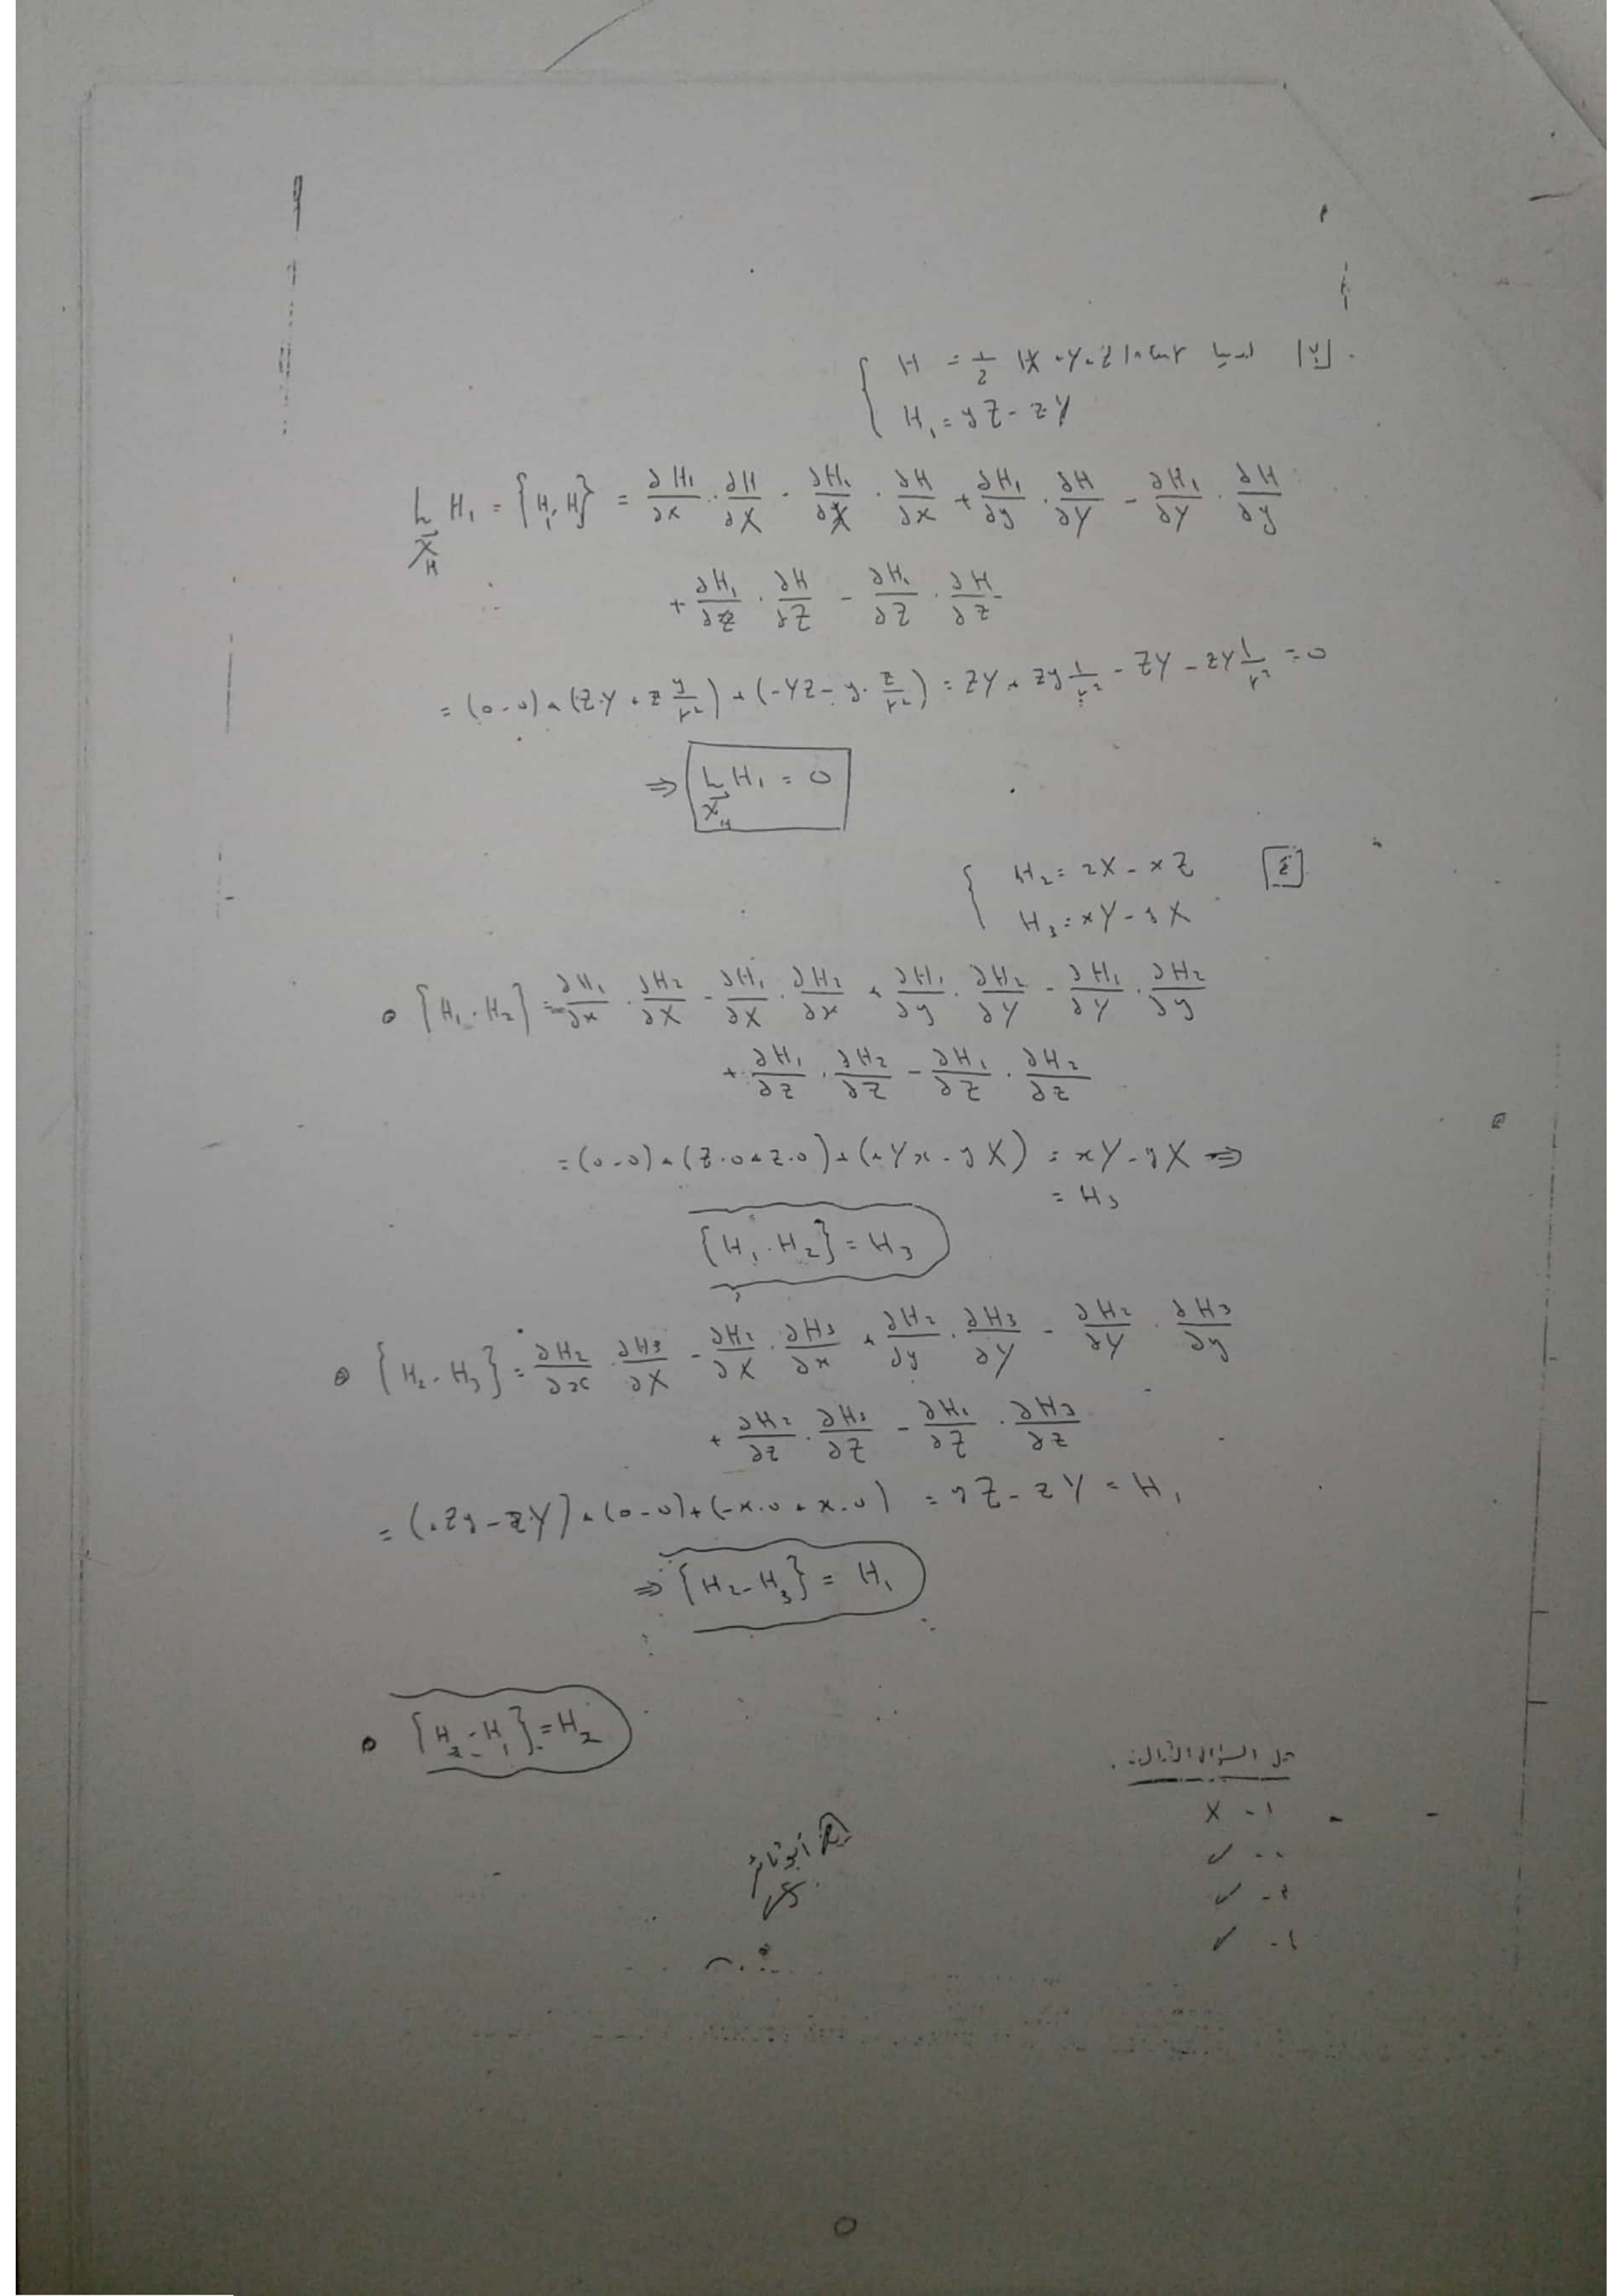 [٣]. لدينا H = 1/2 (X²+Y²+Z²) + Ln r
H₁ = yZ - zY
L_X⃗_H H₁ = {H₁, H} = ∂H₁/∂x · ∂H/∂X - ∂H₁/∂X · ∂H/∂x + ∂H₁/∂y · ∂H/∂Y - ∂H₁/∂Y · ∂H/∂y
+ ∂H₁/∂z · ∂H/∂Z - ∂H₁/∂Z · ∂H/∂z
= (0-0) + (Z·Y + z y/r²) + (-YZ - y· z/r²) = ZY + zy 1/r² - ZY - zy 1/r² = 0
⇒ L_X⃗_H H₁ = 0
[٤] H₂ = zX - xZ
H₃ = xY - yX
{H₁, H₂} = ∂H₁/∂x · ∂H₂/∂X - ∂H₁/∂X · ∂H₂/∂x + ∂H₁/∂y · ∂H₂/∂Y - ∂H₁/∂Y · ∂H₂/∂y
+ ∂H₁/∂z · ∂H₂/∂Z - ∂H₁/∂Z · ∂H₂/∂z
= (0-0) + (Z·0 + z·0) + (+Yx - yX) = xY - yX ⇒
= H₃
{H₁, H₂} = H₃
{H₂, H₃} = ∂H₂/∂x · ∂H₃/∂X - ∂H₂/∂X · ∂H₃/∂x + ∂H₂/∂y · ∂H₃/∂Y - ∂H₂/∂Y · ∂H₃/∂y
+ ∂H₂/∂z · ∂H₃/∂Z - ∂H₂/∂Z · ∂H₃/∂z
= (+Zy - zY) + (0-0) + (-X·0 + x·0) = yZ - zY = H₁
⇒ {H₂, H₃} = H₁
{H₃, H₁} = H₂
حل السؤال الثالث:
١- X
٢- ✓
٣- ✓
٤- ✓
أبو ثائر